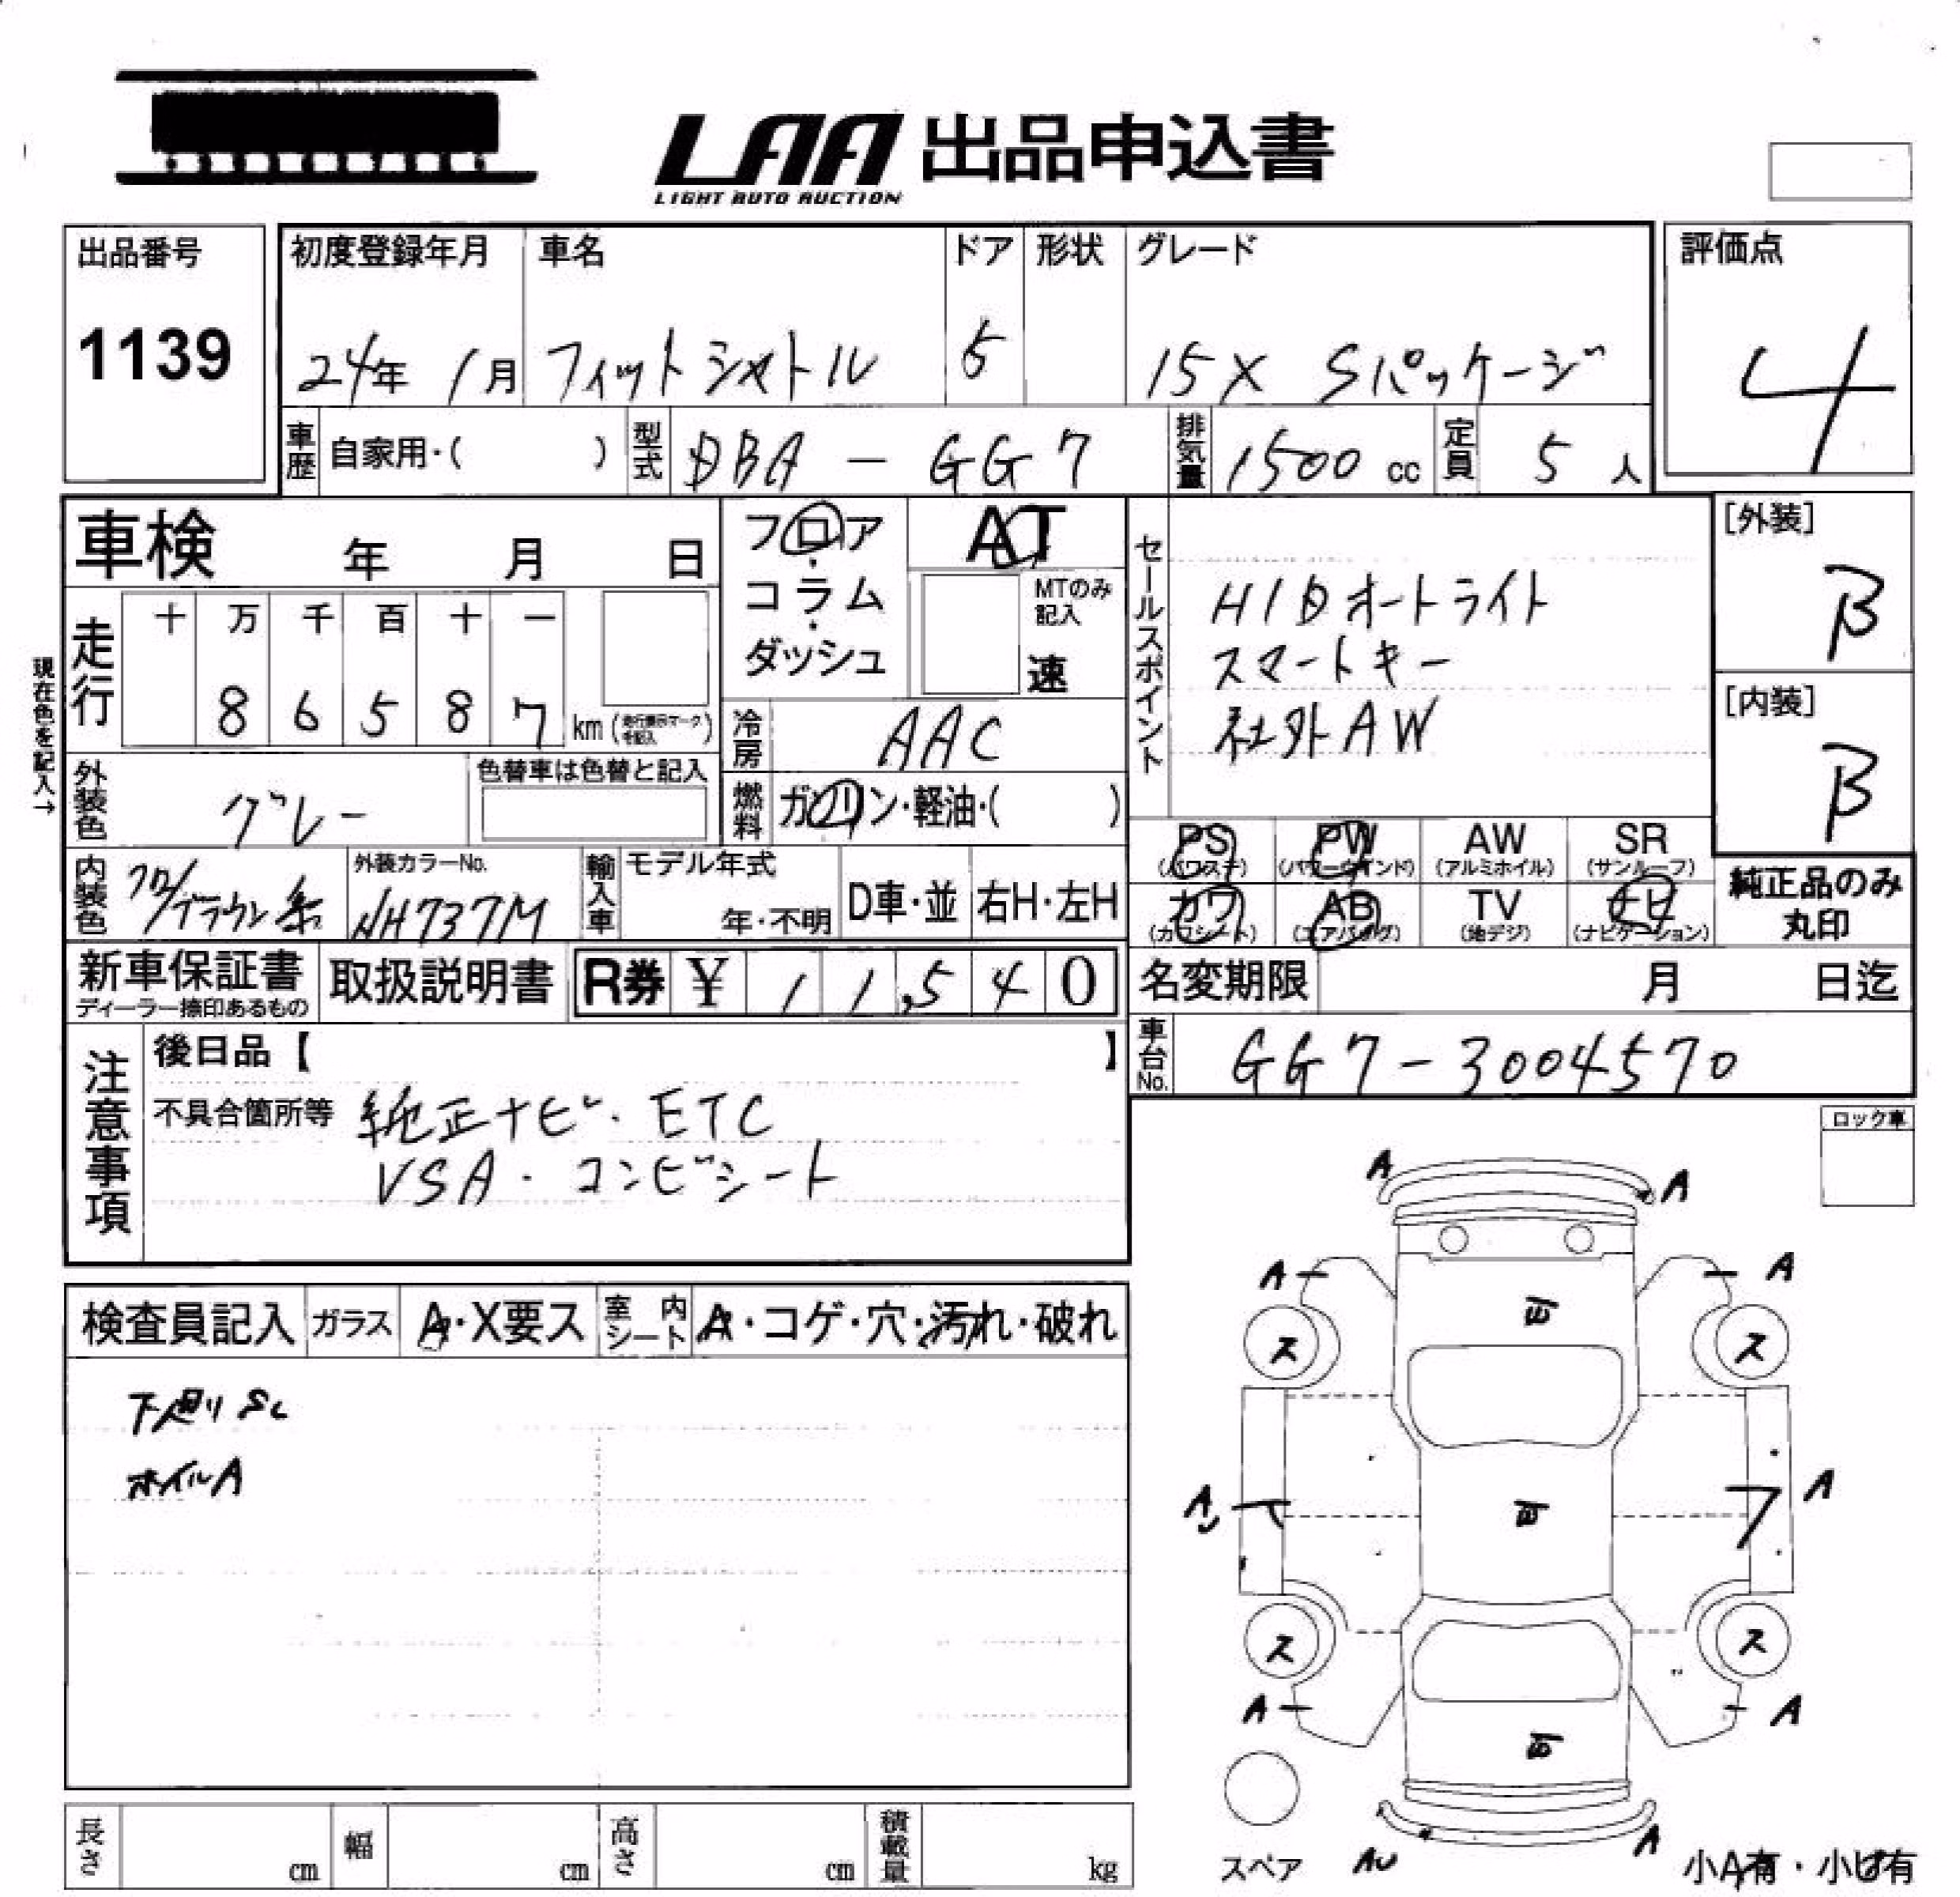 LAA 出品申込書
LIGHT AUTO AUCTION
出品番号
1139
初度登録年月 車名 ドア 形状 グレード
24年 1月 フィットシャトル 5 15X Sパッケージ
評価点
4
車歴 自家用・( ) 型式 DBA - GG7 排気量 1500 cc 定員 5 人
車検 年 月 日
フロア・コラム・ダッシュ
AT
MTのみ記入
速
セールスポイント
HIDオートライト
スマートキー
社外AW
[外装]
B
[内装]
B
現在色を記入→
走行
十 万 千 百 十 一
8 6 5 8 7 km
冷房 AAC
外装色 グレー
色替車は色替と記入
燃料 ガソリン・軽油・( )
内装色 クロ/ブラウン系
外装カラーNo.
NH737M
輸入車 モデル年式
年・不明 D車・並 右H・左H
PS PW AW SR
(パワステ) (パワーウインド) (アルミホイル) (サンルーフ)
カワ AB TV ナビ
(カワシート) (エアバッグ) (地デジ) (ナビゲーション)
純正品のみ
丸印
新車保証書
ディーラー捺印あるもの
取扱説明書
R券 ¥ 1 1,5 4 0
名変期限 月 日迄
車台No. GG7-3004570
注意事項
後日品【 】
不具合箇所等 純正ナビ・ETC
VSA・コンビシート
ロック車
検査員記入 ガラス A・X要ス 室内シート A・コゲ・穴・汚れ・破れ
下廻りSc
ホイルA
A A
A A
ス ス
A A
ス ス
A A
スペア AU A 小A有・小ピ有
長さ cm 幅 cm 高さ cm 積載量 kg